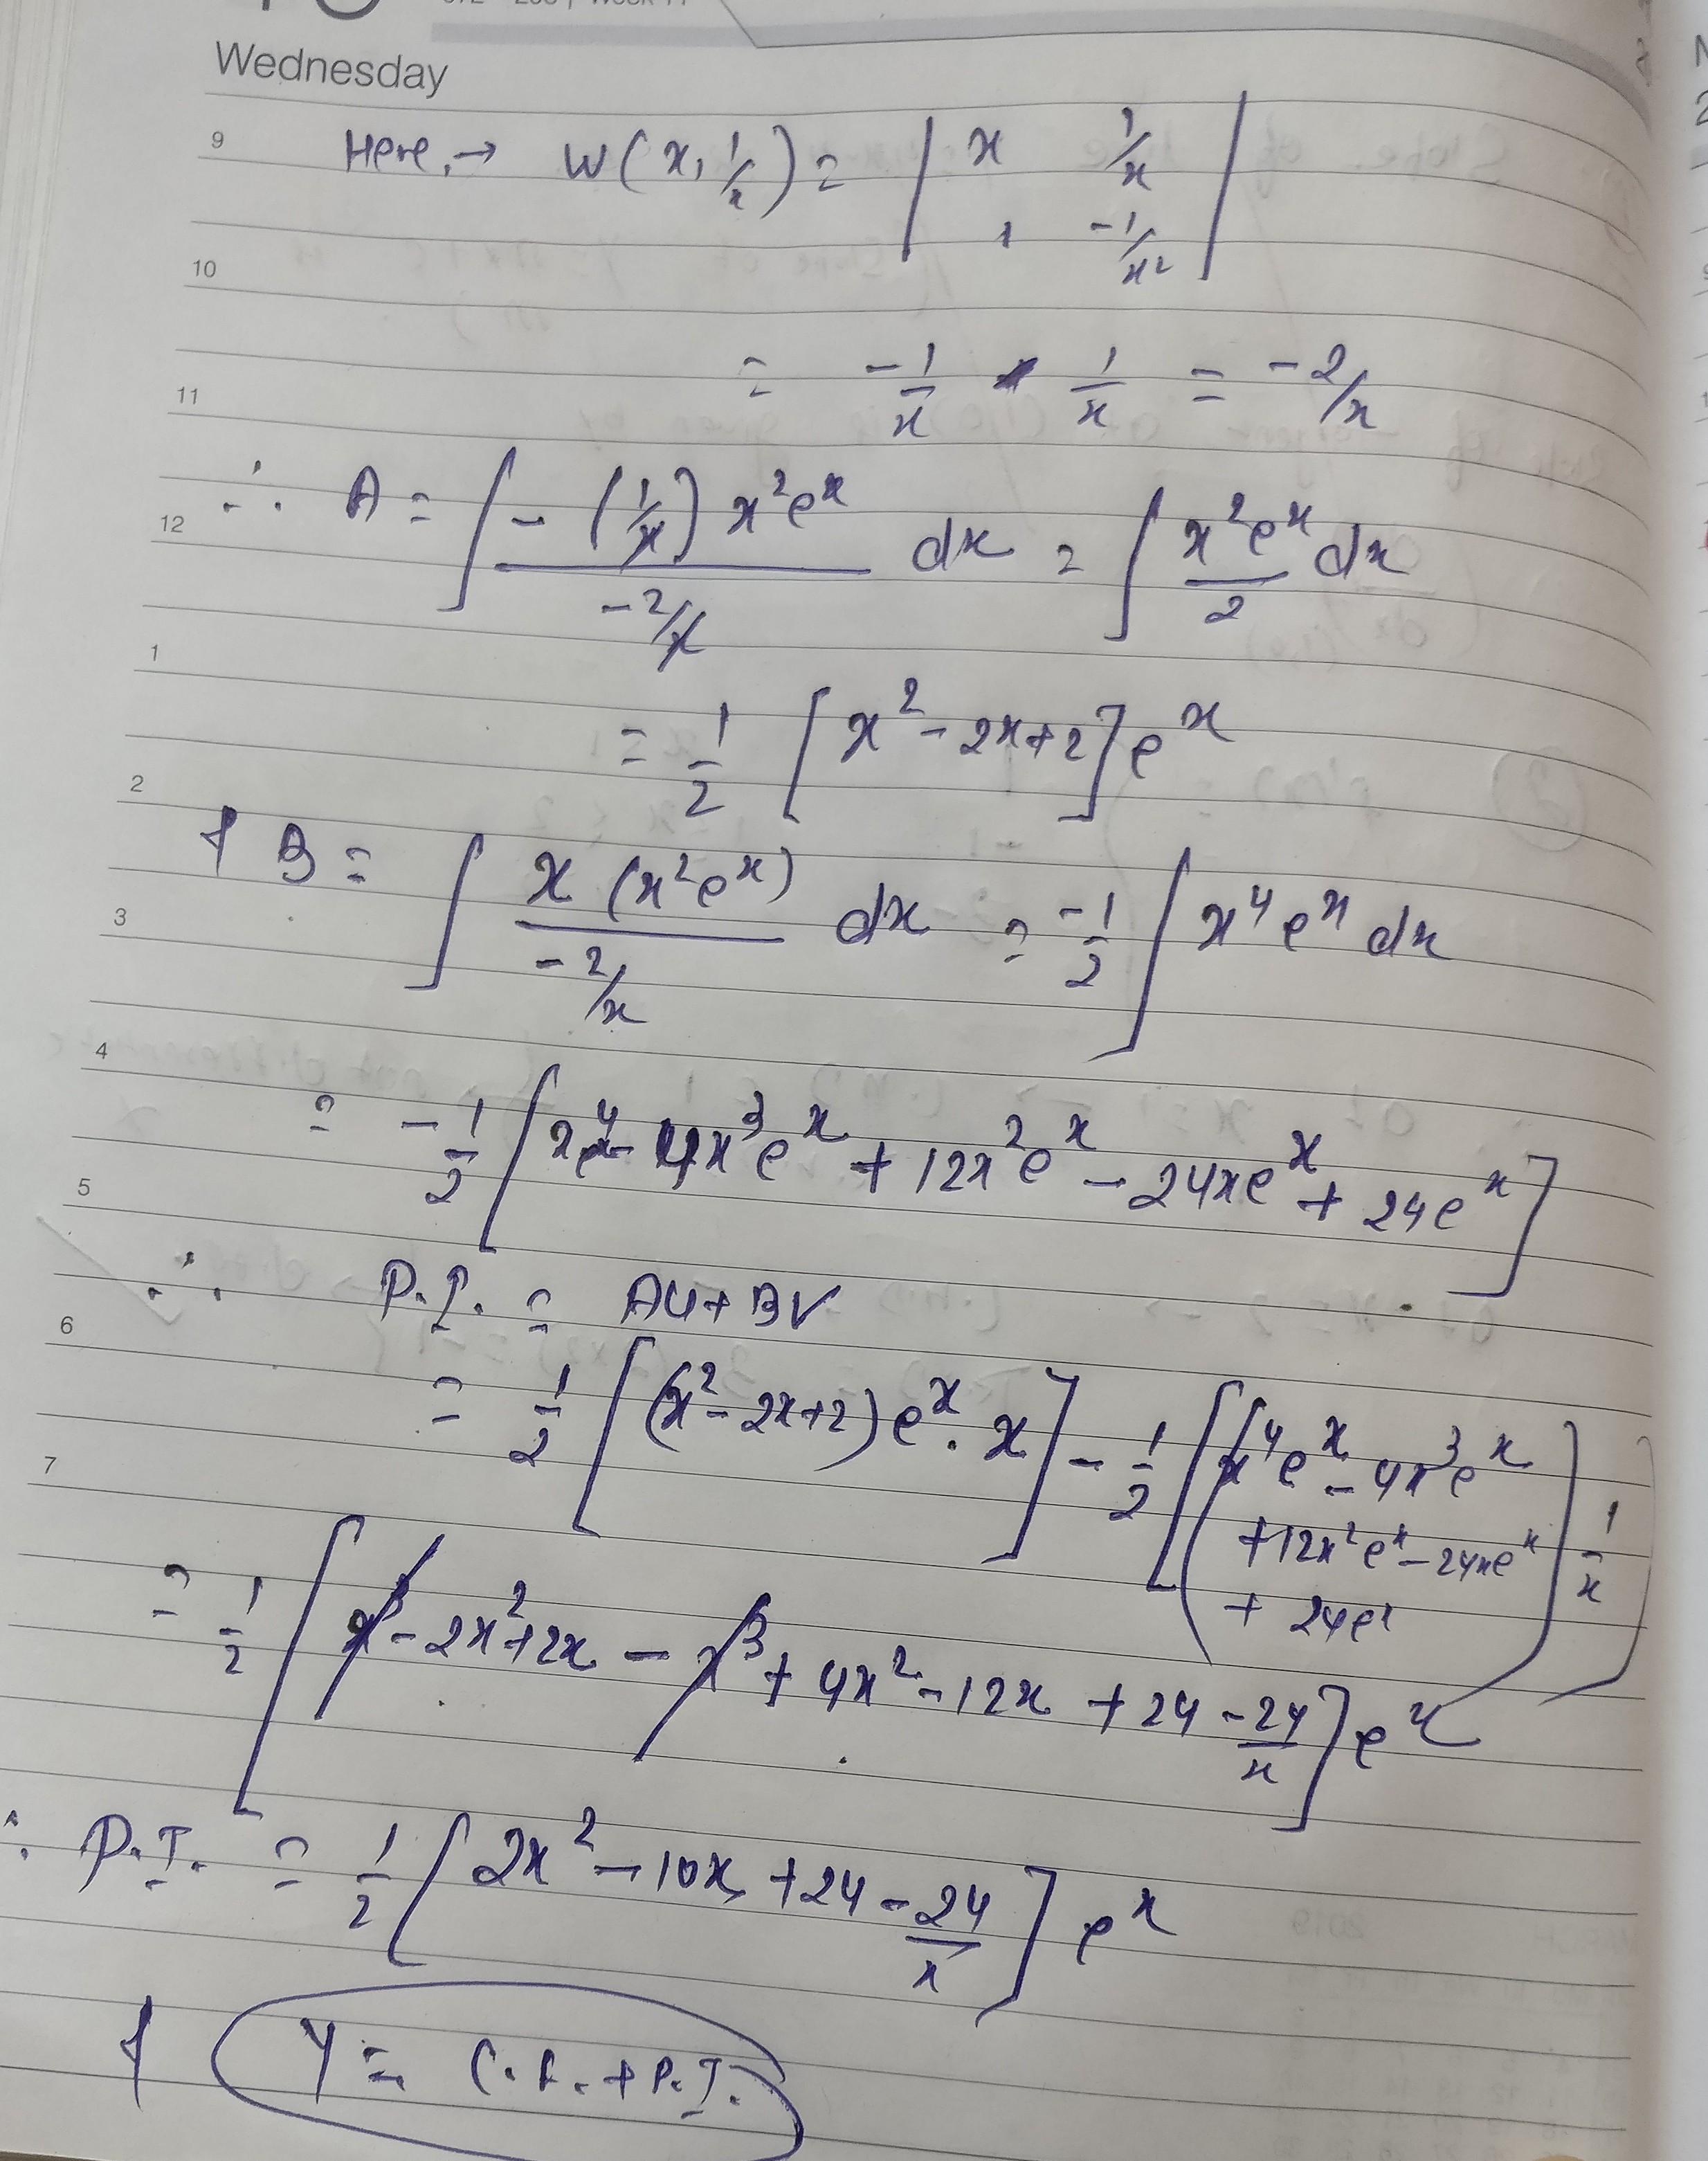 Wednesday
9 Here, → W(x, 1/x) = | x 1/x |
| 1 -1/x² |
10
11 = -1/x - 1/x = -2/x
12 ∴ A = ∫ -(1/x) x²eˣ / (-2/x) dx = ∫ x²eˣ/2 dx
1
= 1/2 [x² - 2x + 2] eˣ
2
3 & B = ∫ x (x²eˣ) / (-2/x) dx = -1/2 ∫ x⁴eˣ dx
4
= -1/2 [x⁴eˣ - 4x³eˣ + 12x²eˣ - 24xeˣ + 24eˣ]
5
∴ P.I. = Au + Bv
6 = 1/2 [(x² - 2x + 2) eˣ . x] - 1/2 [(x⁴eˣ - 4x³eˣ
+ 12x²eˣ - 24xeˣ
+ 24eˣ) 1/x]
7
= 1/2 [x³ - 2x² + 2x - x³ + 4x² - 12x + 24 - 24/x] eˣ
∴ P.I. = 1/2 [2x² - 10x + 24 - 24/x] eˣ
& Y = C.F. + P.I.